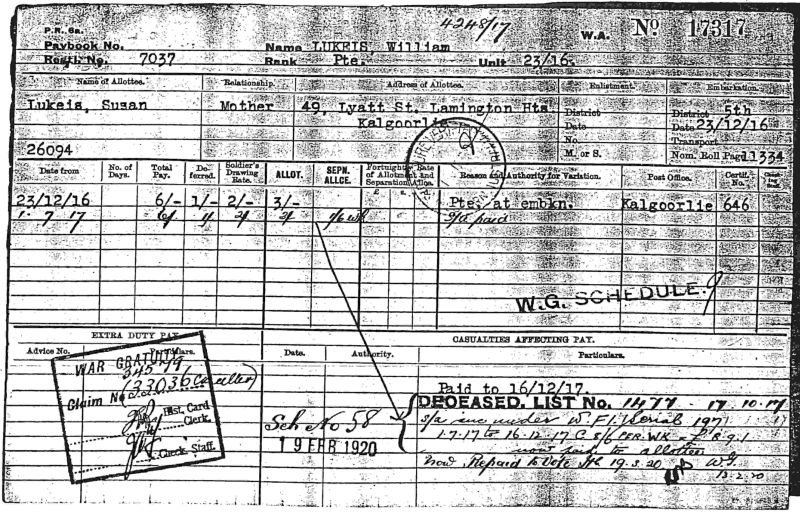 4248/17
P.R. 6a.
W.A. No 17317
Paybook No.
Name LUKEIS, William
Regtl. No. 7037
Rank Pte.
Unit 23/16.
Name of Allottee.
Relationship.
Address of Allottee.
Enlistment.
Embarkation.
Lukeis, Susan
Mother
49, Lyatt St. Lamington Hts
Kalgoorlie
District
Date
No.
M. or S.
District 5th
Date 23/12/16
Transport
Nom. Roll Page 11334
26094
Date from
No. of Days.
Total Pay.
Deferred.
Soldier's Drawing Rate.
ALLOT.
SEPN. ALLCE.
Fortnightly Rate of Allotment and Separation Allce.
Reason and Authority for Variation.
Post Office.
Certif. No.
23/12/16 6/- 1/- 2/- 3/- Pte. at embkn. Kalgoorlie 646
1. 7. 17 6/- 1/- 2/-
s/a paid
W.G. SCHEDULE.
EXTRA DUTY PAY.
CASUALTIES AFFECTING PAY.
Advice No.
Particulars.
Date.
Authority.
Particulars.
WAR GRATUITY
34579
Claim No
Hist. Card Clerk.
Check Staff.
Sch No 58
19 FEB 1920
Paid to 16/12/17.
DECEASED. LIST No. 1477 17.10.17
s/a inc under W.F.1. Serial 197
1.7.17 to 16.12.17 @ 8/6 PER WK =
now paid to allottee
now Repaid to Vote 19.3.20
W.G.